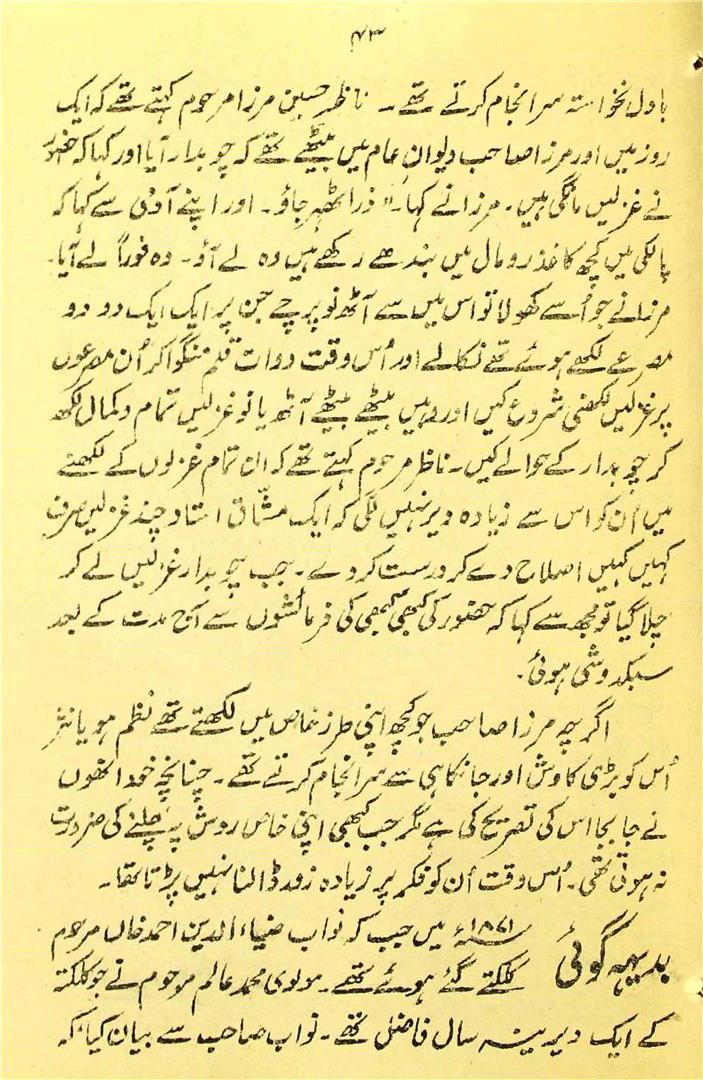 ۴۳
بادل نخواستہ سرانجام کرتے تھے ۔ ناظر حسین مرزا مرحوم کہتے تھے کہ ایک
روز میں اور مرزا صاحب دیوان عام میں بیٹھے تھے کہ چوبدار آیا اور کہا کہ حضور
نے غزلیں مانگی ہیں۔ مرزا نے کہا۔ " ذرا ٹھہر جاؤ۔ اور اپنے آدمی سے کہا کہ
پالکی میں کچھ کاغذ رومال میں بندھے رکھے ہیں وہ لے آؤ۔ وہ فوراً لے آیا۔
مرزا نے جو اُسے کھولا تو اس میں سے آٹھ نو پرچے جن پر ایک ایک دو دو
مصرعے لکھے ہوئے تھے نکالے اور اُس وقت دوات قلم منگوا کر اُن مصرعوں
پر غزلیں لکھنی شروع کیں اور وہیں بیٹھے بیٹھے آٹھ یا نو غزلیں تمام و کمال لکھ
کر چوبدار کے حوالے کیں۔ ناظر مرحوم کہتے تھے کہ ان تمام غزلوں کے لکھنے
میں اُن کو اس سے زیادہ دیر نہیں لگی کہ ایک مشّاق استاد چند غزلیں صرف
کہیں کہیں اصلاح دے کر درست کر دے ۔ جب چوبدار غزلیں لے کر
چلا گیا تو مجھ سے کہا کہ حضور کی کبھی کبھی کی فرمائشوں سے آج مدت کے بعد
سبکدوشی ہوئی ۔
اگرچہ مرزا صاحب جو کچھ اپنی طرز خاص میں لکھتے تھے نظم ہو یا نثر
اُس کو بڑی کاوش اور جانکاہی سے سرانجام کرتے تھے ۔ چنانچہ خود انھوں
نے جا بجا اس کی تصریح کی ہے مگر جب کبھی اپنی خاص روش پہ چلنے کی ضرورت
نہ ہوتی تھی۔ اُس وقت اُن کو فکر پر زیادہ زور ڈالنا نہیں پڑتا تھا ۔
بدیہہ گوئی ۱۸۷۱ء میں جب کہ نواب ضیاء الدین احمد خاں مرحوم
کلکتے گئے ہوئے تھے ۔ مولوی محمد عالم مرحوم نے جو کلکتہ
کے ایک دیرینہ سال فاضل تھے ۔ نواب صاحب سے بیان کیا کہ